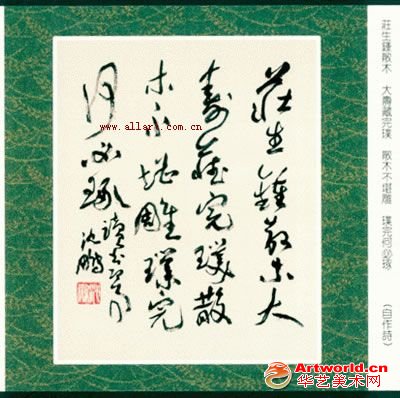 莊生鍾散木　大壽藏完璞　散木不堪雕　璞完何必琢　（自作詩）
莊生鍾散木大
壽藏完璞散
木不堪雕璞完
何必琢
沈鵬
www.allart.com.cn
Artworld.cn
华艺美术网